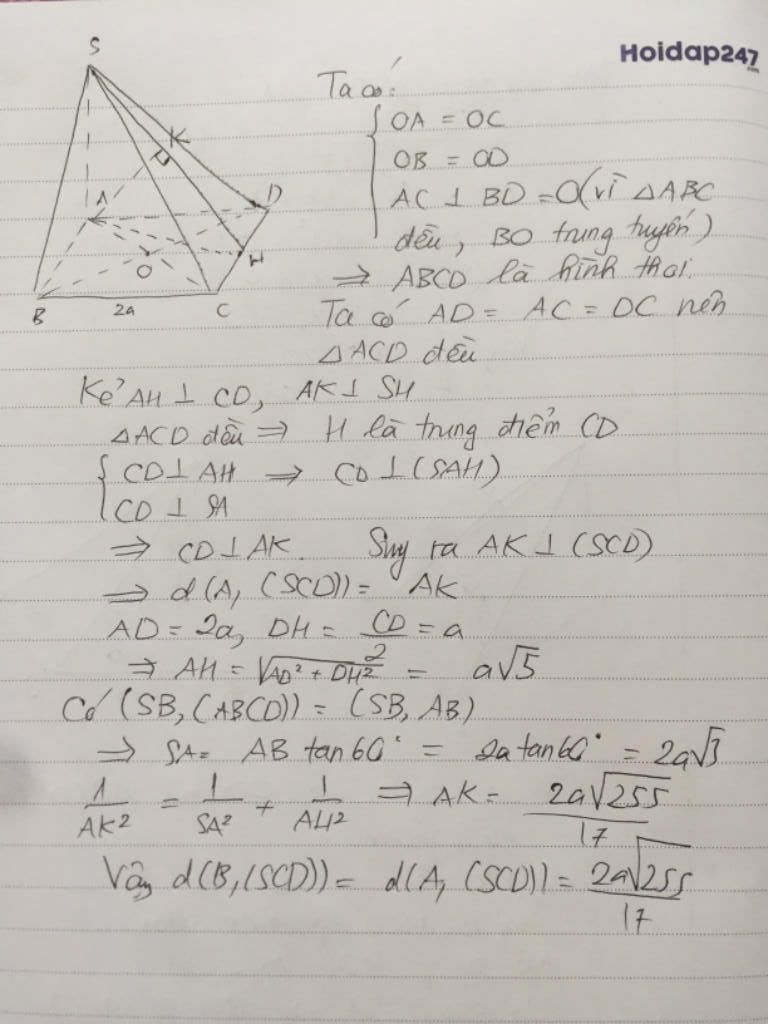 Hoidap247
.com
S
K
A
D
O
H
B
2a
C
Ta có:
OA = OC
OB = OD
AC ⊥ BD = O (vì △ABC
đều, BO trung tuyến)
⇒ ABCD là hình thoi.
Ta có AD = AC = DC nên
△ACD đều
Kẻ AH ⊥ CD, AK ⊥ SH
△ACD đều ⇒ H là trung điểm CD
{ CD ⊥ AH ⇒ CD ⊥ (SAH)
CD ⊥ SA
⇒ CD ⊥ AK. Suy ra AK ⊥ (SCD)
⇒ d(A, (SCD)) = AK
AD = 2a, DH = CD/2 = a
⇒ AH = √(AD² + DH²) = a√5
Có (SB, (ABCD)) = (SB, AB)
⇒ SA = AB tan60° = 2a tan60° = 2a√3
1/AK² = 1/SA² + 1/AH² ⇒ AK = 2a√255/17
Vậy d(B, (SCD)) = d(A, (SCD)) = 2a√255/17